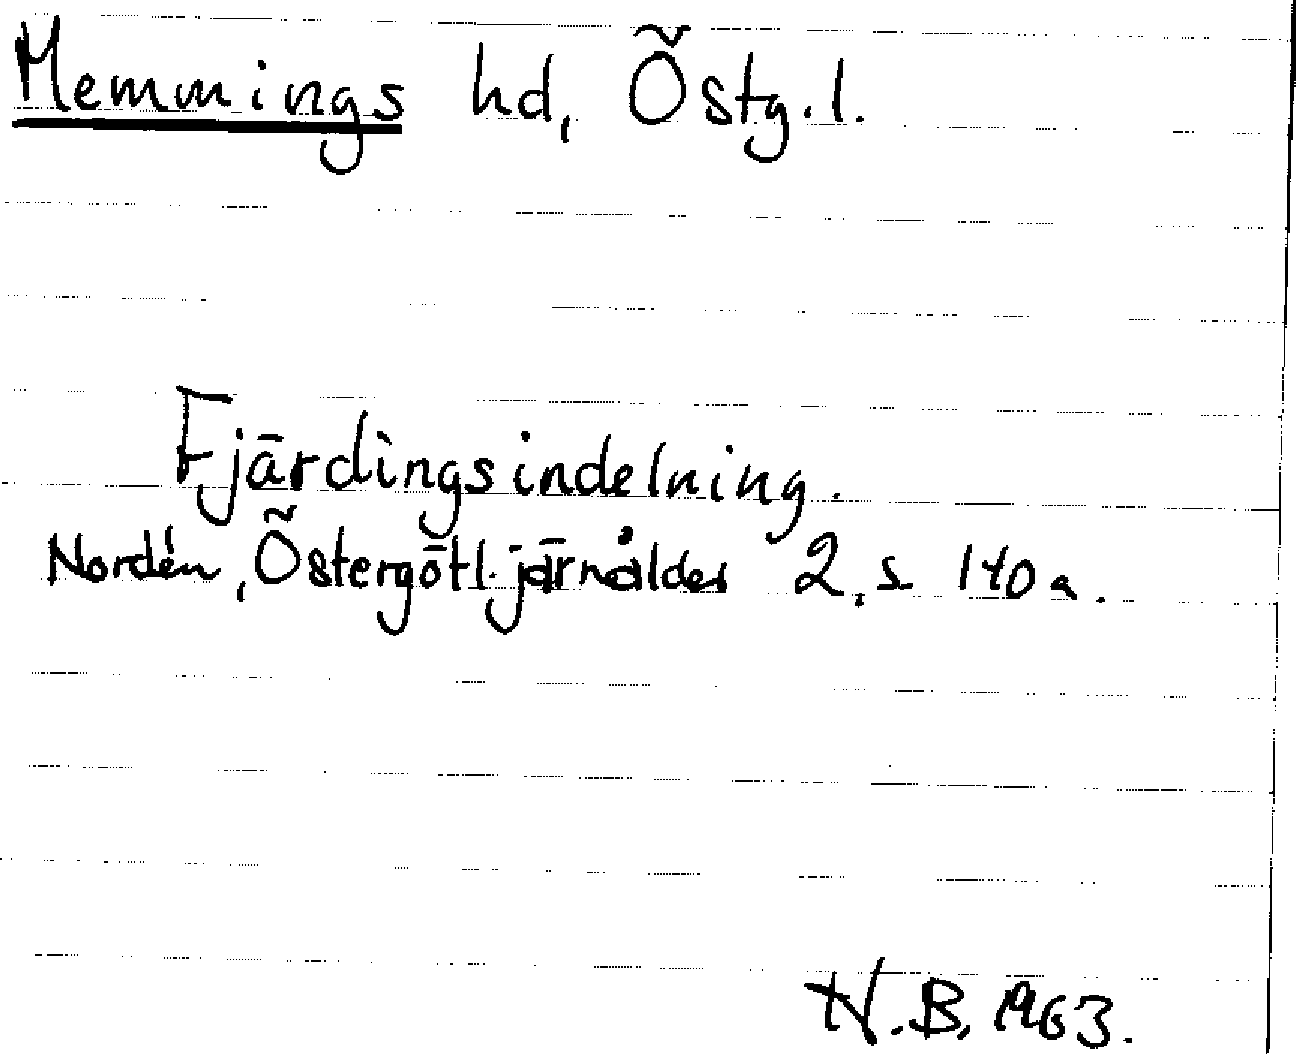 Memmings hd, Östg.l.
Fjärdingsindelning.
Nordén, Östergötl. järnålder 2, s 140 a.
N.B. 1963.